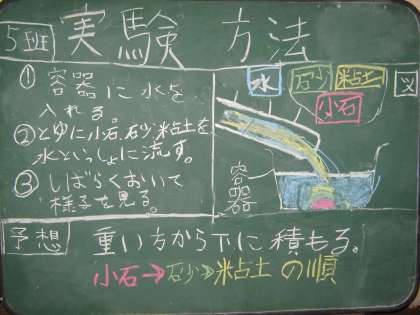 5班 実験 方法
① 容器に水を
入れる。
②とゆに小石、砂、粘土を
水といっしょに流す。
③ しばらくおいて
様子を見る。
図
水 砂 粘土
小石
容器
予想 重い方から下に積もる。
小石→砂→粘土の順